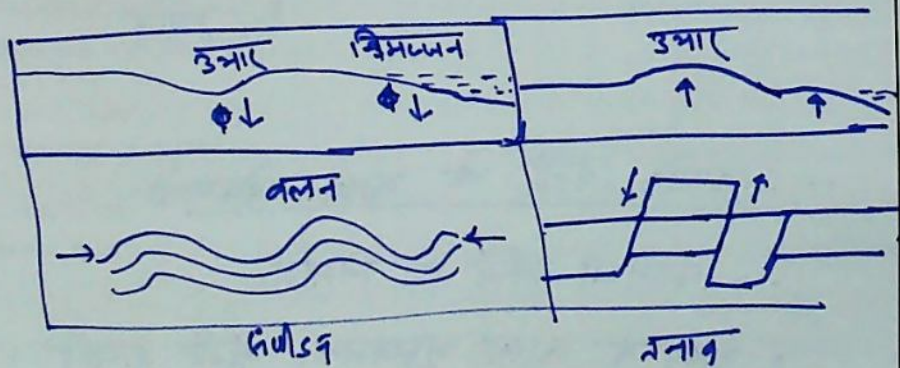 उभार निमज्जन उभार
वलन
संपीडन तनाव